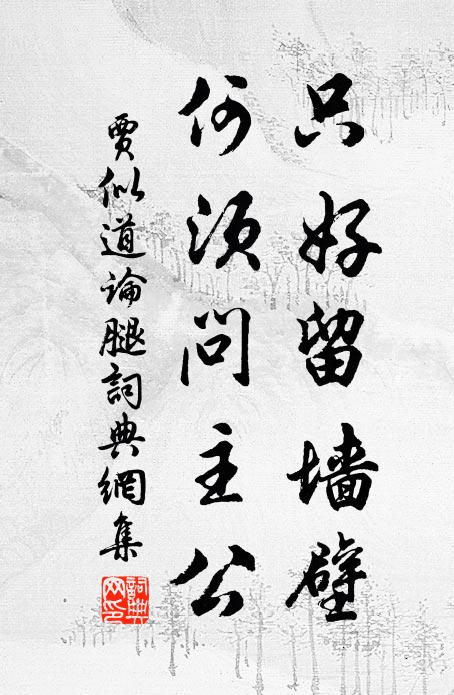 只好留墙壁
何须问主公
賈似道論腿詞典網集
詞典网印